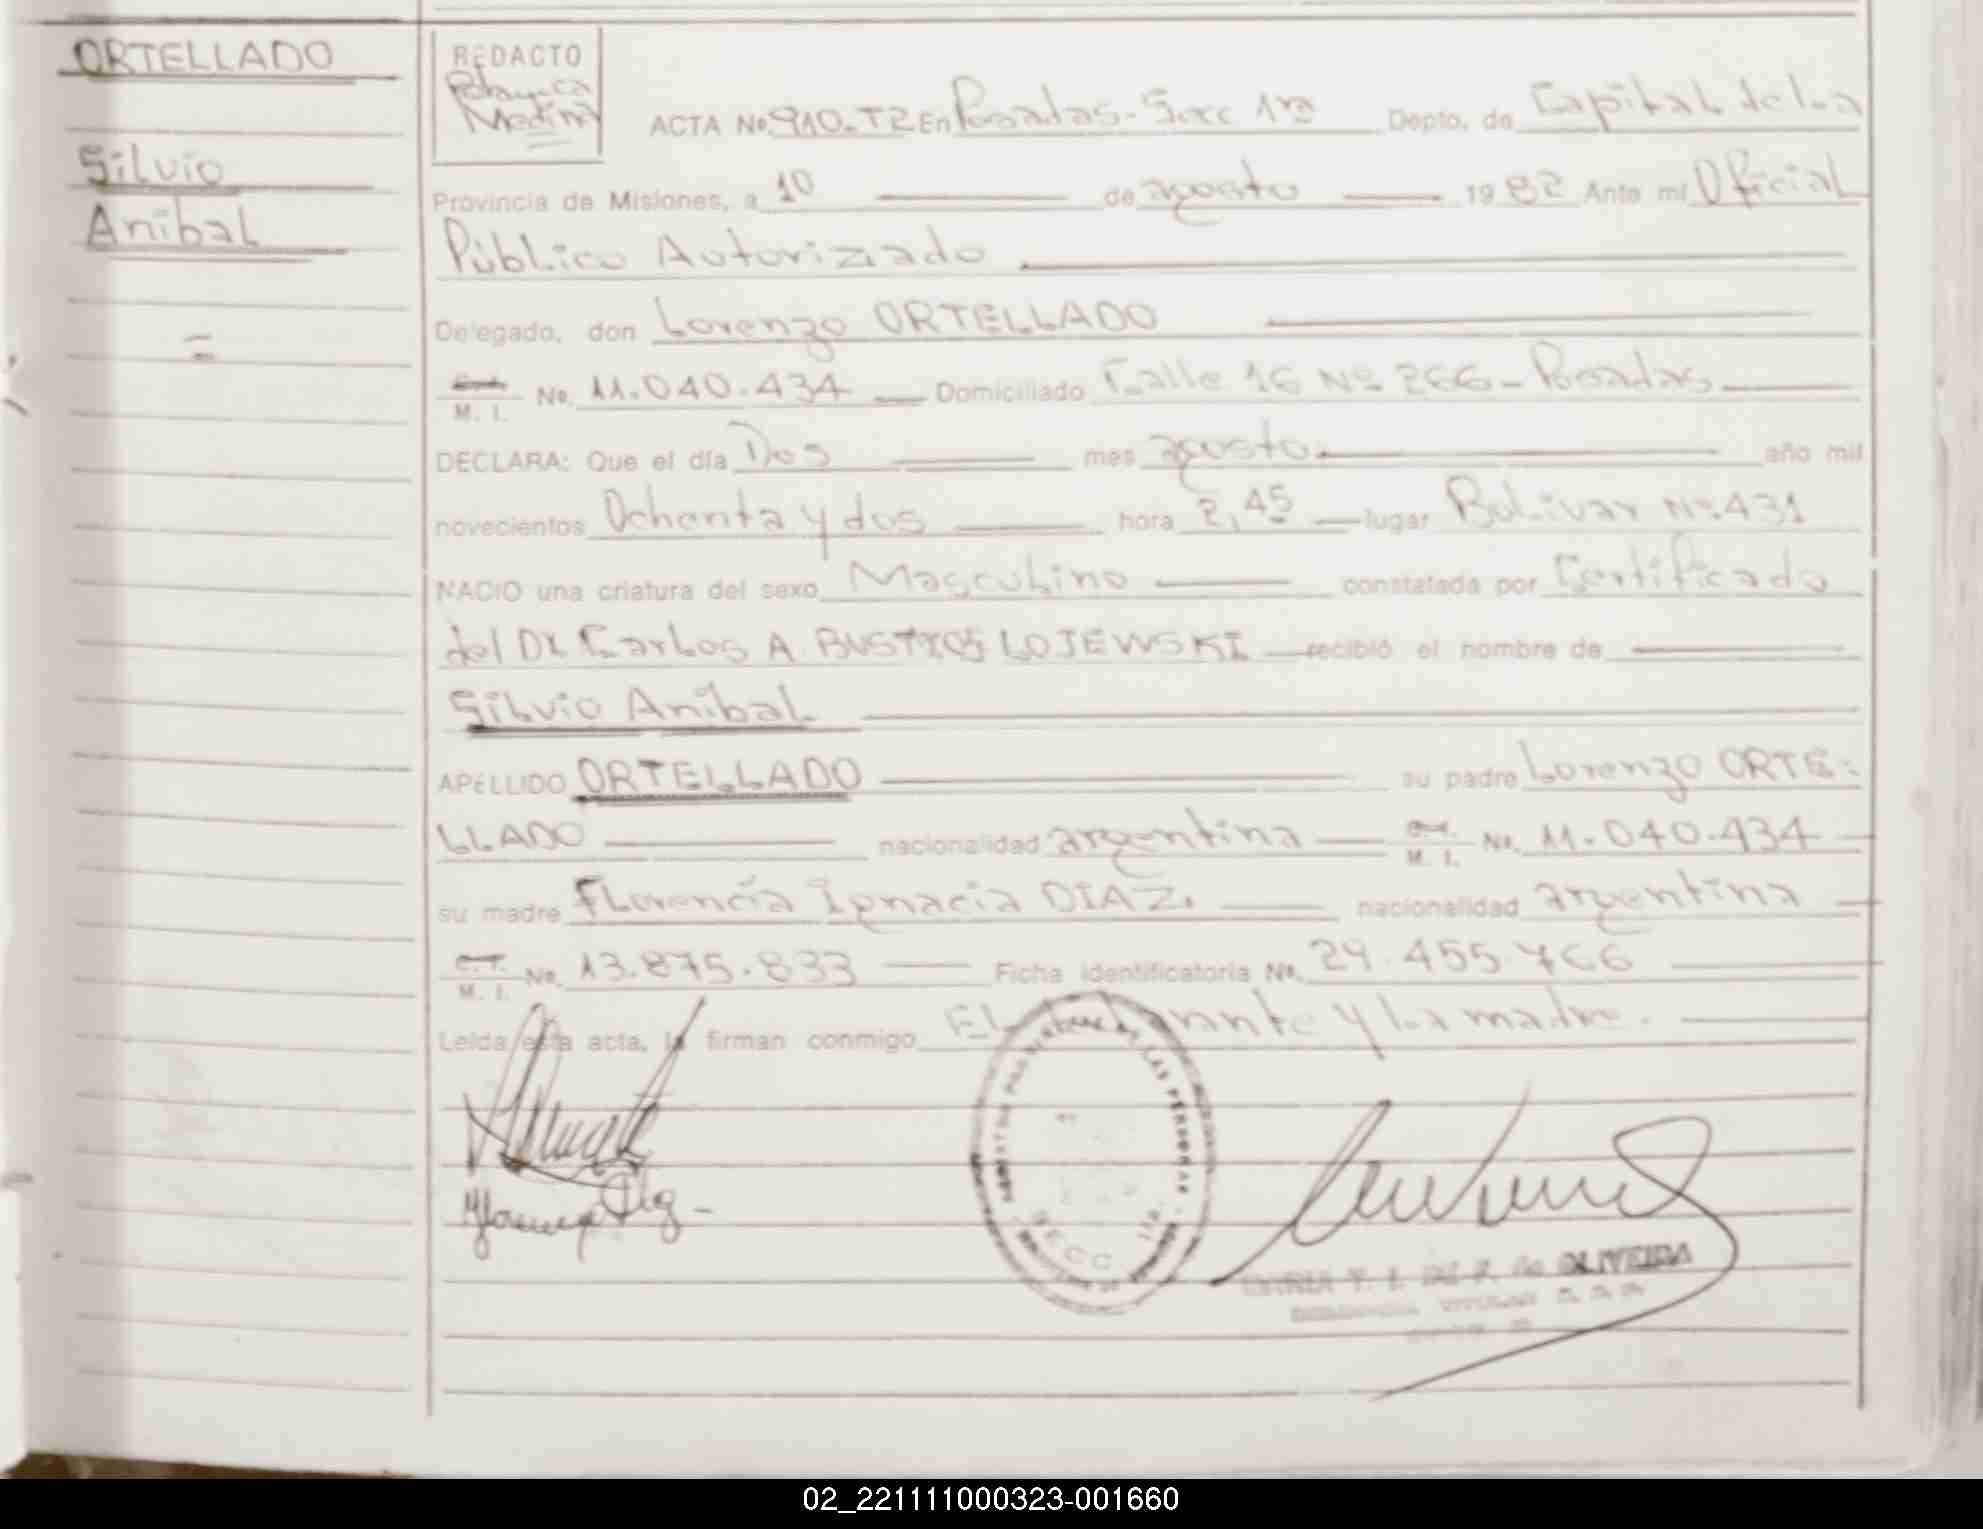 ORTELLADO
Silvio
Anibal
REDACTO
Medina
ACTA No. 910-T2 En Posadas- Secc 1ra Depto. de Capital de La
Provincia de Misiones, a 10 de agosto 1982 Ante mí Oficial
Público Autorizado
Delegado, don Lorenzo ORTELLADO
M. I. No. 11.040.434 Domiciliado Calle 16 Nº 266- Posadas
DECLARA: Que el día Dos mes agosto. año mil
novecientos Ochenta y dos hora 2,45 lugar Bolivar Nº.431
NACIO una criatura del sexo Masculino constatada por Certificado
del Dr Carlos A. BUSTOS LOJEWSKI recibió el nombre de
Silvio Anibal
APELLIDO ORTELLADO su padre Lorenzo ORTE-
LLADO nacionalidad argentina C.I. M. I. No. 11.040.434
su madre Florencia Ignacia DIAZ. nacionalidad argentina
C.I. M. I. No. 13.875.833 Ficha identificatoria No. 29.455.766
Leída esta acta, la firman conmigo El y la madre.
DE LAS PERSONAS
SECC 1ra.
OLIVEIRA
02_221111000323-001660